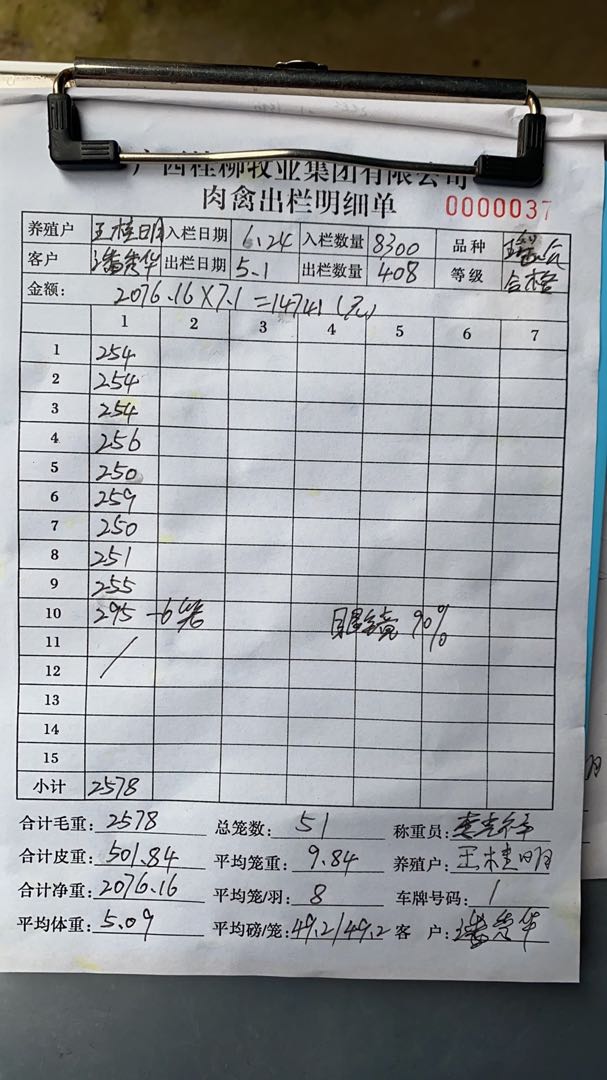 广西桂柳牧业集团有限公司
肉禽出栏明细单 0000037
养殖户 王桂明 入栏日期 6.24 入栏数量 8300 品种 瑶
客户 潘贵华 出栏日期 5.1 出栏数量 408 等级 合格
金额: 2076.16×7.1=14741(元)
1 2 3 4 5 6 7
1 254
2 254
3 254
4 256
5 250
6 259
7 250
8 251
9 255
10 295 -6笼 眼镜90%
11 /
12
13
14
15
小计 2578
合计毛重: 2578 总笼数: 51 称重员:
合计皮重: 501.84 平均笼重: 9.84 养殖户: 王桂明
合计净重: 2076.16 平均笼/羽: 8 车牌号码: 1
平均体重: 5.09 平均磅/笼: 49.2/49.2 客 户: 潘贵华